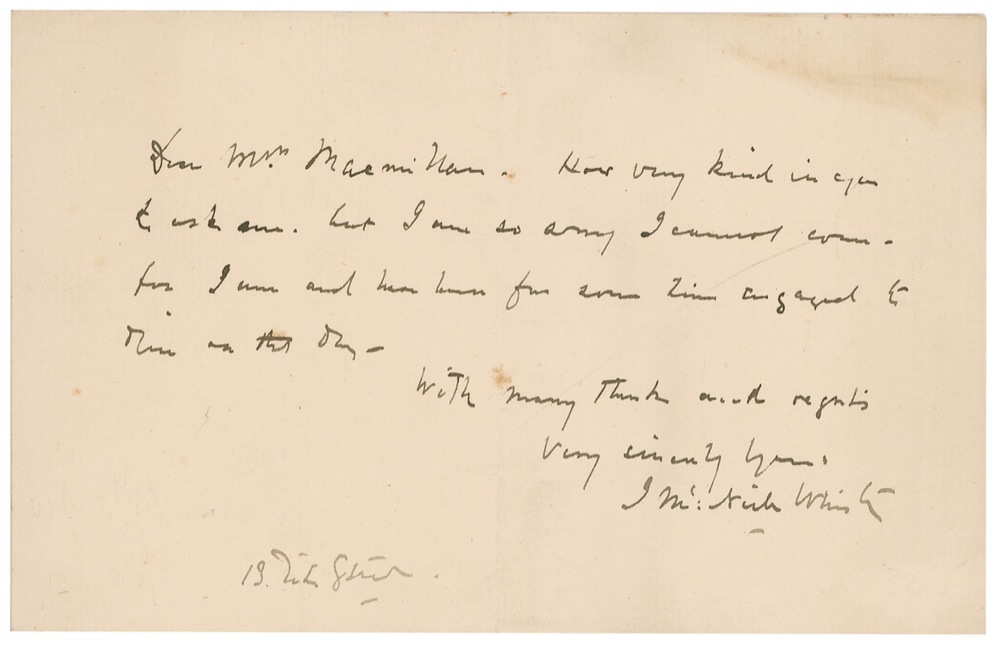 Dear Mrs. Macmillan. How very kind in you
to ask me. but I am so sorry I cannot come -
for I am and have been for some time engaged to
dine on that day -
With many thanks and regrets
Very sincerely yours.
J. Mc:Neill Whistler
13. Tite Street.